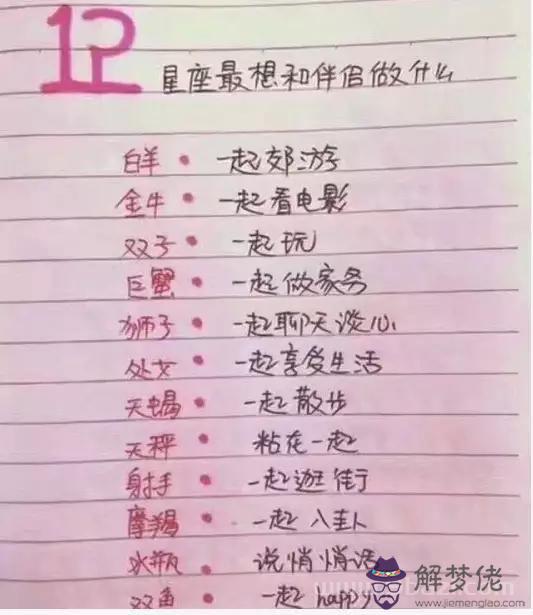 12
星座最想和伴侣做什么
白羊 • 一起郊游
金牛 • 一起看电影
双子 • 一起玩
巨蟹 • 一起做家务
狮子 • 一起聊天谈心
处女 • 一起享受生活
天蝎 • 一起散步
天秤 • 粘在一起
射手 • 一起逛街
摩羯 • 一起八卦
水瓶 • 说悄悄话
双鱼 • 一起happy
解梦佬
www.jiemenglao.com